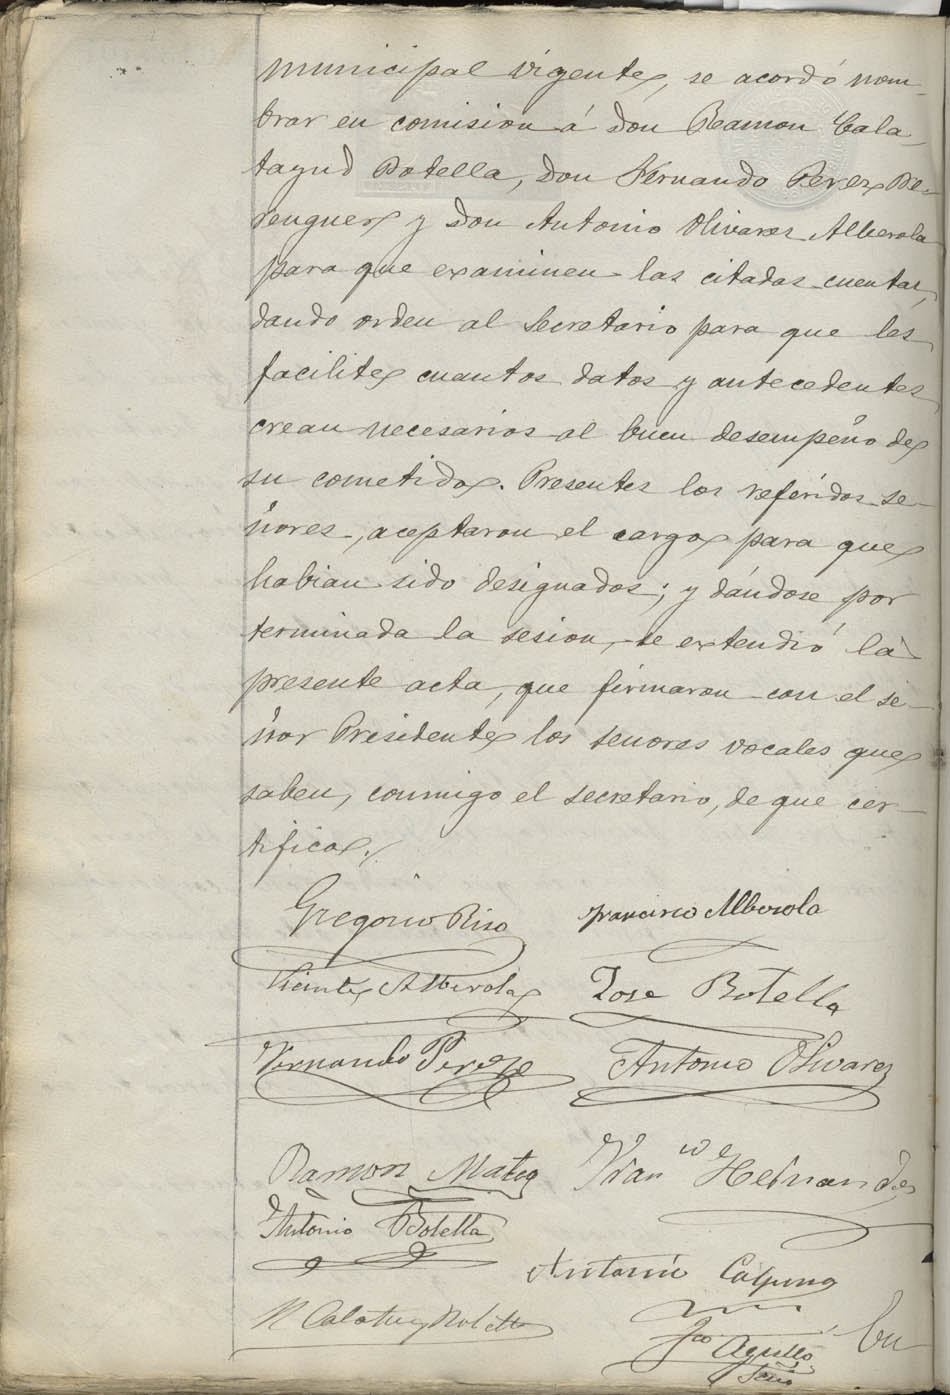 municipal vigente, se acordó nom-
brar en comision á don Ramon Cala-
tayud Botella, don Fernando Perez Be-
renguer y don Antonio Olivares Alberola
para que examinen las citadas cuentas,
dando orden al Secretario para que les
facilite cuantos datos y antecedentes
crean necesarios al buen desempeño de
su cometido. Presentes los referidos se-
ñores, aceptaron el cargo para que
habian sido designados; y dándose por
terminada la sesion, se extendió la
presente acta, que firmaron con el se-
ñor Presidente los señores vocales que
saben, conmigo el secretario, de que cer-
tifico.
Gregorio Rico Francisco Alberola
Vicente Alberola José Botella
Fernando Perez Antonio Olivares
Ramon Mateo Fran.co Hernandez
Antonio Botella
Antonio
R Calatayud Botella
Fco Agulló
Srio